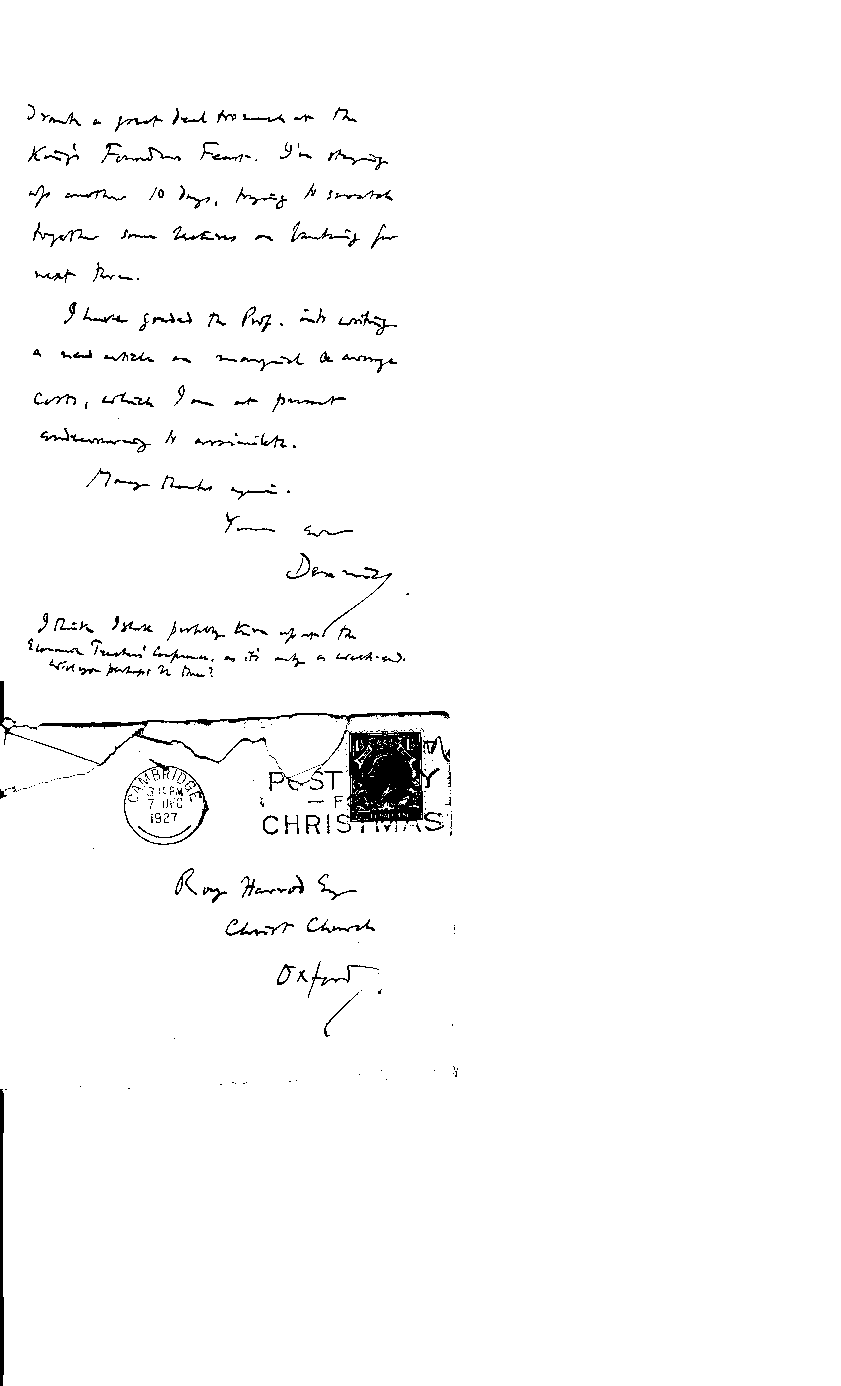 I drank a great deal too much at the
King's Founders Feast. I'm staying
up another 10 days, trying to scratch
together some lectures on banking for
next term.
I have goaded the Prof. into writing
a new article on marginal & average
costs, which I am at present
endeavouring to assimilate.
Many thanks again.
Yours ever
Dennis
I think I shall probably turn up at the
Economic Teachers' Conference, as it's only a week-end.
Will you perhaps be there?
CAMBRIDGE
3 15 PM
7 DEC
1927
POST
CHRISTMAS
Roy Harrod Esq
Christ Church
Oxford.